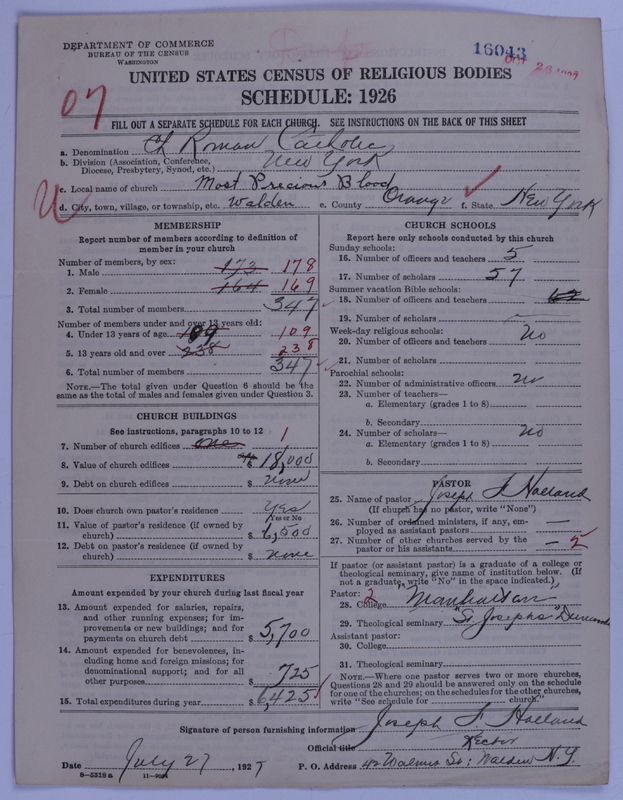 DEPARTMENT OF COMMERCE
BUREAU OF THE CENSUS
WASHINGTON
16043
UNITED STATES CENSUS OF RELIGIOUS BODIES
SCHEDULE: 1926
07
FILL OUT A SEPARATE SCHEDULE FOR EACH CHURCH. SEE INSTRUCTIONS ON THE BACK OF THIS SHEET
a. Denomination Roman Catholic
b. Division (Association, Conference, Diocese, Presbytery, Synod, etc.) New York
c. Local name of church Most Precious Blood
d. City, town, village, or township, etc. Walden e. County Orange f. State New York
MEMBERSHIP
Report number of members according to definition of member in your church
Number of members, by sex:
1. Male 173 178
2. Female 164 169
3. Total number of members 347
Number of members under and over 13 years old:
4. Under 13 years of age 109 109
5. 13 years old and over 238 238
6. Total number of members 347
NOTE.—The total given under Question 6 should be the same as the total of males and females given under Question 3.
CHURCH BUILDINGS
See instructions, paragraphs 10 to 12
7. Number of church edifices one 1
8. Value of church edifices $ 18,000
9. Debt on church edifices $ none
10. Does church own pastor's residence Yes
Yes or No
11. Value of pastor's residence (if owned by church) $ 6,500
12. Debt on pastor's residence (if owned by church) $ none
EXPENDITURES
Amount expended by your church during last fiscal year
13. Amount expended for salaries, repairs, and other running expenses; for improvements or new buildings; and for payments on church debt $ 5,700
14. Amount expended for benevolences, including home and foreign missions; for denominational support; and for all other purposes $ 725
15. Total expenditures during year $ 6,425
CHURCH SCHOOLS
Report here only schools conducted by this church
Sunday schools:
16. Number of officers and teachers 5
17. Number of scholars 57
Summer vacation Bible schools:
18. Number of officers and teachers
19. Number of scholars
Week-day religious schools:
20. Number of officers and teachers no
21. Number of scholars
Parochial schools:
22. Number of administrative officers no
23. Number of teachers—
a. Elementary (grades 1 to 8)
b. Secondary
24. Number of scholars— no
a. Elementary (grades 1 to 8)
b. Secondary
PASTOR
25. Name of pastor Joseph F. Holland
(If church has no pastor, write "None")
26. Number of ordained ministers, if any, employed as assistant pastors —
27. Number of other churches served by the pastor or his assistants — 2
If pastor (or assistant pastor) is a graduate of a college or theological seminary, give name of institution below. (If not a graduate, write "No" in the space indicated.)
Pastor: 2
28. College "Manhattan"
29. Theological seminary "St Josephs" Dunwoodie
Assistant pastor:
30. College
31. Theological seminary
NOTE.—Where one pastor serves two or more churches, Questions 28 and 29 should be answered only on the schedule for one of the churches; on the schedules for the other churches, write "See schedule for church."
Signature of person furnishing information Joseph F. Holland
Official title Rector
Date July 27, 1927 P. O. Address 42 Walnut St: Walden N.Y.